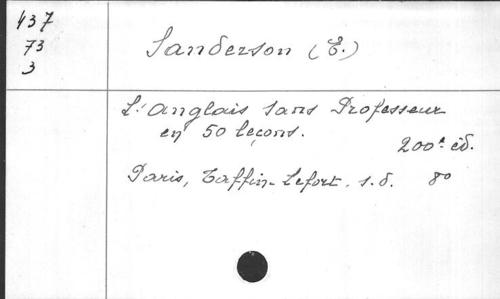 437
73
3
Sanderson (E.)
L'anglais sans Professeur
en 50 leçons.
200e éd.
Paris, Taffin-Lefort. s.d. 8°